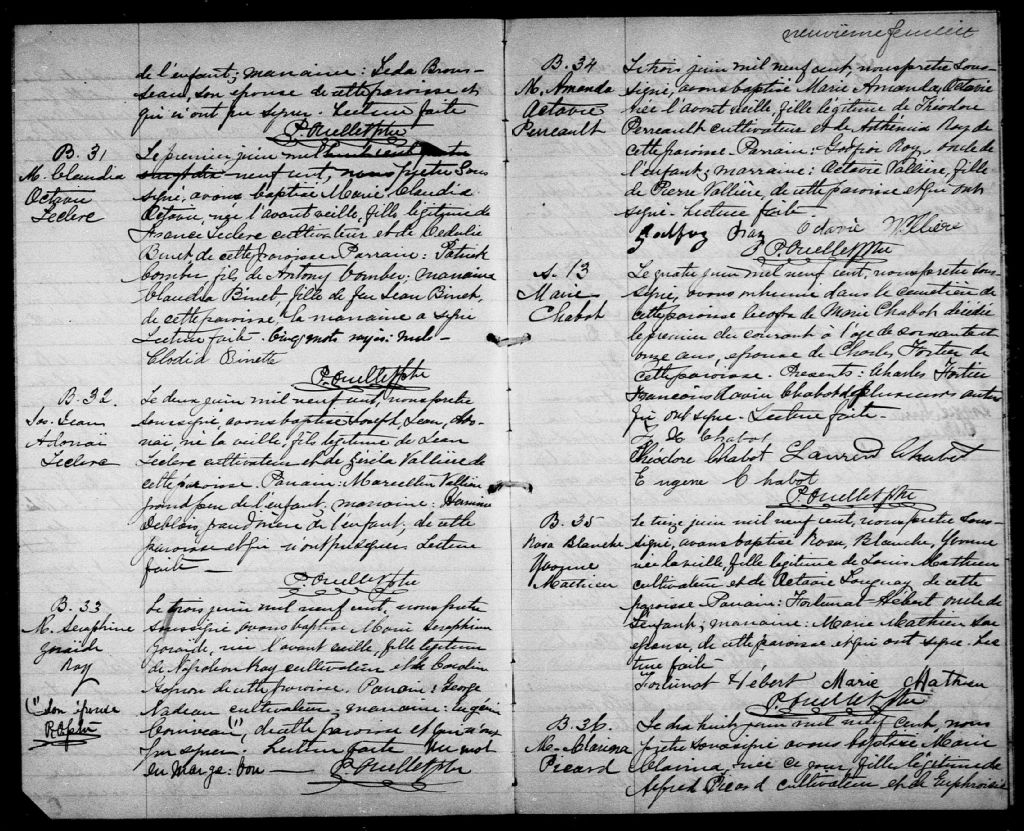 de l'enfant; marraine: Leda Brous-
seau, son épouse de cette paroisse et
qui n'ont pu signer. Lecture faite
P. Ouellet Ptre
B. 31
M. Claudia
Octavie
Leclerc
Le premier juin mil huit cent
neuf cent, nous prêtre sous-
signé, avons baptisé Marie Claudia
Octavie, née l'avant veille, fille légitime de
Francis Leclerc cultivateur et de Rédulie
Binet de cette paroisse Parrain: Patrick
fils de Antony marraine
Claudia Binet, fille de feu Jean Binet,
de cette paroisse, la marraine a signé
Lecture faite. Cinq mots rayés nuls-
Clodia Binette
P. Ouellet Ptre
B. 32.
Jos. Jean
Adonaï
Leclerc
Le deux juin mil neuf cent, nous prêtre
soussigné avons baptisé Joseph, Jean, Ado-
naï, né la veille, fils légitime de Jean
Leclerc cultivateur et de Vallière de
cette paroisse. Parrain: Marcellin Vallière
grand père de l'enfant, marraine:
Deblois, grand'mère de l'enfant, de cette
paroisse et qui n'ont pu signer Lecture
faite —
P. Ouellet Ptre
B. 33
M. Séraphine
Zoraïde
Roy
(") son épouse
P. O. ptre
Le trois juin mil neuf cent, nous prêtre
soussigné avons baptisé Marie Séraphine
Zoraïde, née l'avant veille, fille légitime
de Napoléon Roy cultivateur et de
Gagnon de cette paroisse. Parrain: George
Nadeau cultivateur, marraine: Eugénie
("), de cette paroisse et qui n'ont
pu signer. Lecture faite Un mot
en marge: bon — P. Ouellet Ptre
neuvième feuillet
B. 34
M. Amanda
Octavie
Perreault
Le trois juin mil neuf cent, nous prêtre sous-
signé, avons baptisé Marie Amanda, Octavie
née l'avant veille, fille légitime de Théodore
Perreault cultivateur et de Arthémia Roy de
cette paroisse. Parrain: Godfroi Roy, oncle de
l'enfant; marraine: Octavie Vallière, fille
de Pierre Vallière, de cette paroisse et qui ont
signé. Lecture faite.
Godfroy Roy Octavie Vallière
P. Ouellet Ptre
S. 13
Marie
Chabot
Le quatre juin mil neuf cent, nous prêtre sous-
signé, avons inhumé dans le cimetière de
cette paroisse le corps de Marie Chabot décédée
le premier du courant à l'âge de soixante et
onze ans, épouse de Charles Fortier de
cette paroisse. Présents: Charles Fortier
François Xavier Chabot et plusieurs autres
qui ont signé. Lecture faite-
F. X. Chabot
Théodore Chabot Laurent Chabot
Eugène Chabot
P. Ouellet Ptre
B. 35
Rosa Blanche
Yvonne
Mathieu
Le treize juin mil neuf cent, nous prêtre sous-
signé, avons baptisé Rosa, Blanche, Yvonne
née la veille, fille légitime de Louis Mathieu
cultivateur et de Octavie Tanguay de cette
paroisse Parrain: Fortunat Hébert oncle de
l'enfant; marraine: Marie Mathieu son
épouse, de cette paroisse et qui ont signé. Lec-
ture faite
Fortunat Hébert Marie Mathieu
P. Ouellet Ptre
B. 36
M. Marina
Picard
Le dix huit juin mil neuf cent, nous
prêtre soussigné avons baptisé Marie
Marina, née ce jour, fille légitime de
Alfred Picard cultivateur et de Euphrosie